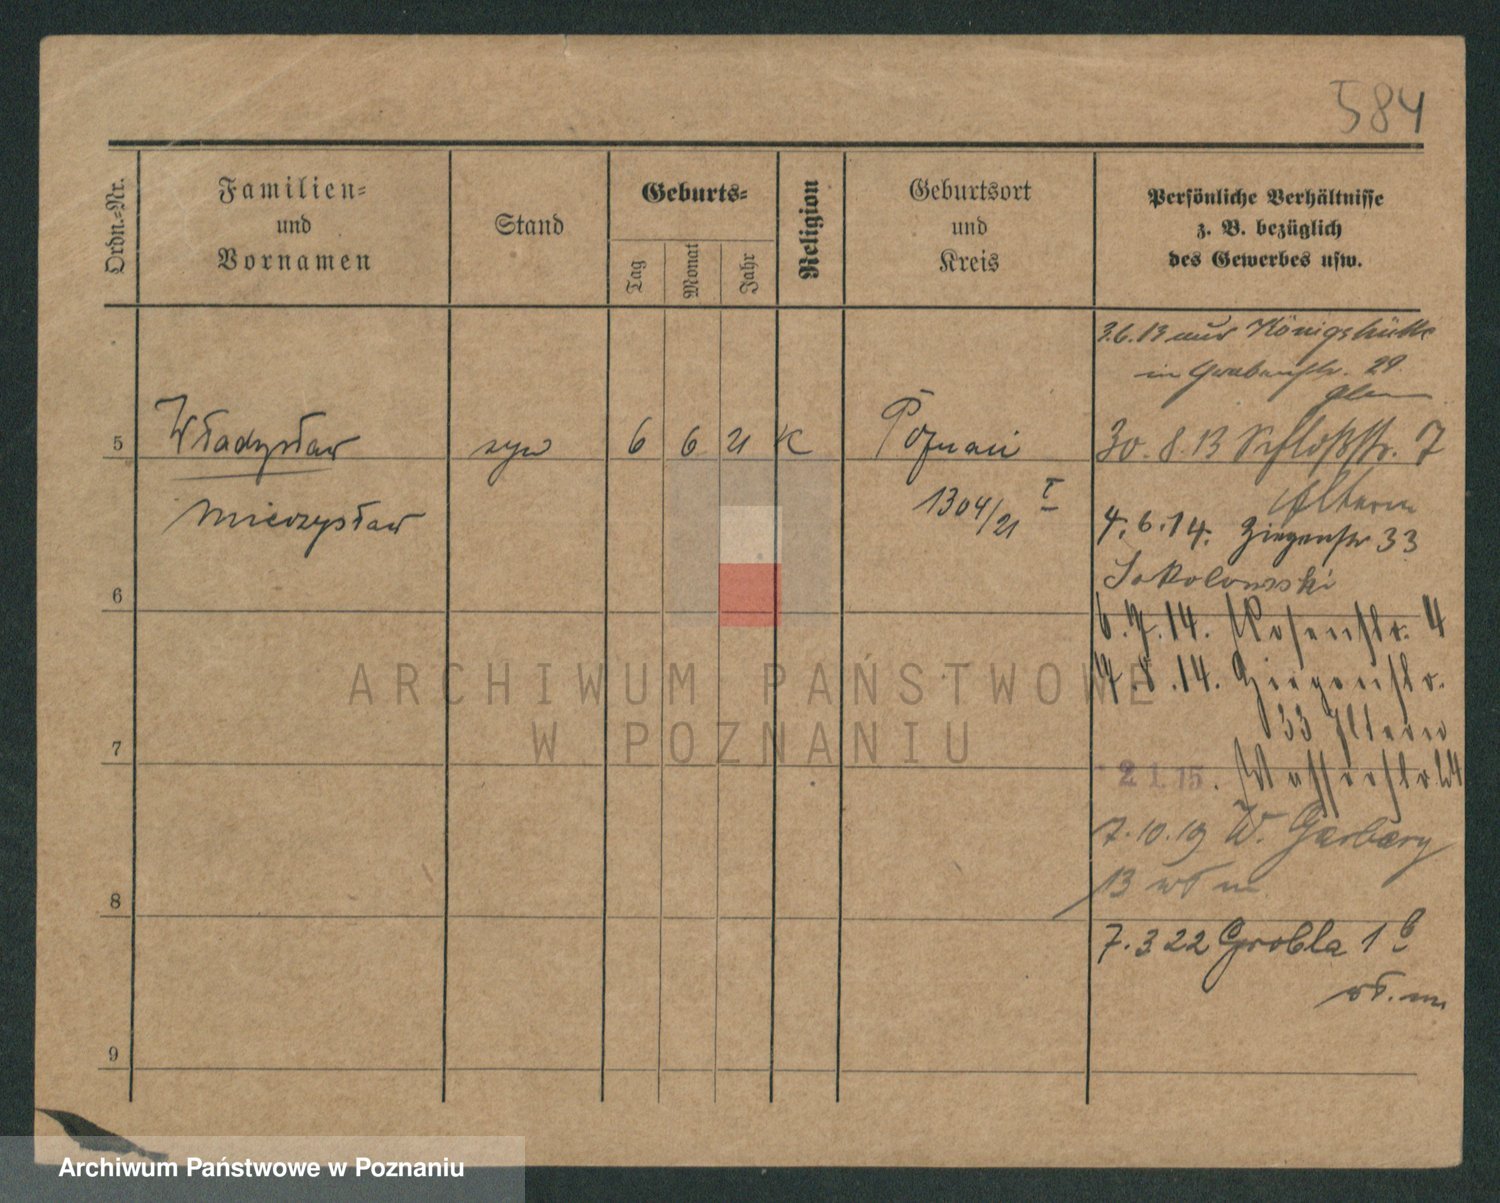 584
Ordn.=Nr.
Familien=
und
Vornamen
Stand
Geburts=
Tag
Monat
Jahr
Religion
Geburtsort
und
Kreis
Persönliche Verhältnisse
z. B. bezüglich
des Gewerbes usw.
3.6.13 aus Königshütte
in Grabenstr. 29
5 Władysław syn 6 6 21 K Poznań 30.8.13 Schloßstr. 7
Mieczysław 1304/21 I
Eltern
4.6.14. Ziegenstr 33
Sokolowski
6
6.7.14. Rosenstr. 4
4.8.14. Ziegenstr.
33 Eltern
7
2 1. 15. Wasserstr. 24
7.10.19 W. Garbary
13 wł m
8
7.3 22 Grobla 1
wł. m
9
ARCHIWUM PAŃSTWOWE
W POZNANIU
Archiwum Państwowe w Poznaniu